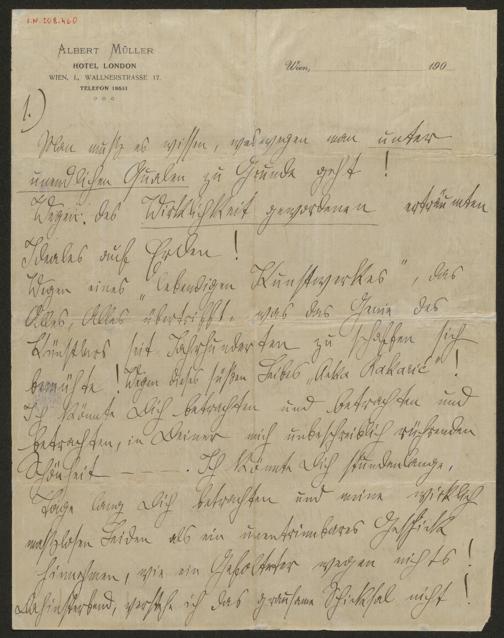 I.N. 208.460
ALBERT MÜLLER
HOTEL LONDON
WIEN, I., WALLNERSTRASSE 17.
TELEFON 18651
Wien, 190
1.)
Man muß es wissen, weswegen man unter
unendlichen Qualen zu Grunde geht !
Wegen des Wirklichkeit gewordenen erträumten
Ideales auf Erden !
Wegen eines „lebendigen Kunstwerkes", das
Alles, Alles übertrifft, was das Genie des
Künstlers seit Jahrhunderten zu schaffen sich
bemühte ! Wegen dieses süßen Leibes,
Ich könnte Dich betrachten und betrachten und
betrachten, in Deiner mich unbeschreiblich rührenden
Schönheit — — —. Ich könnte Dich stundenlange,
Tage lang Dich betrachten und meine wirklich
maßlosen Leiden als ein unentrinnbares Geschick
hinnehmen, wie ein Gefolterter wegen nichts !
Dahinsterbend, verstehe ich das grausame Schicksal nicht !